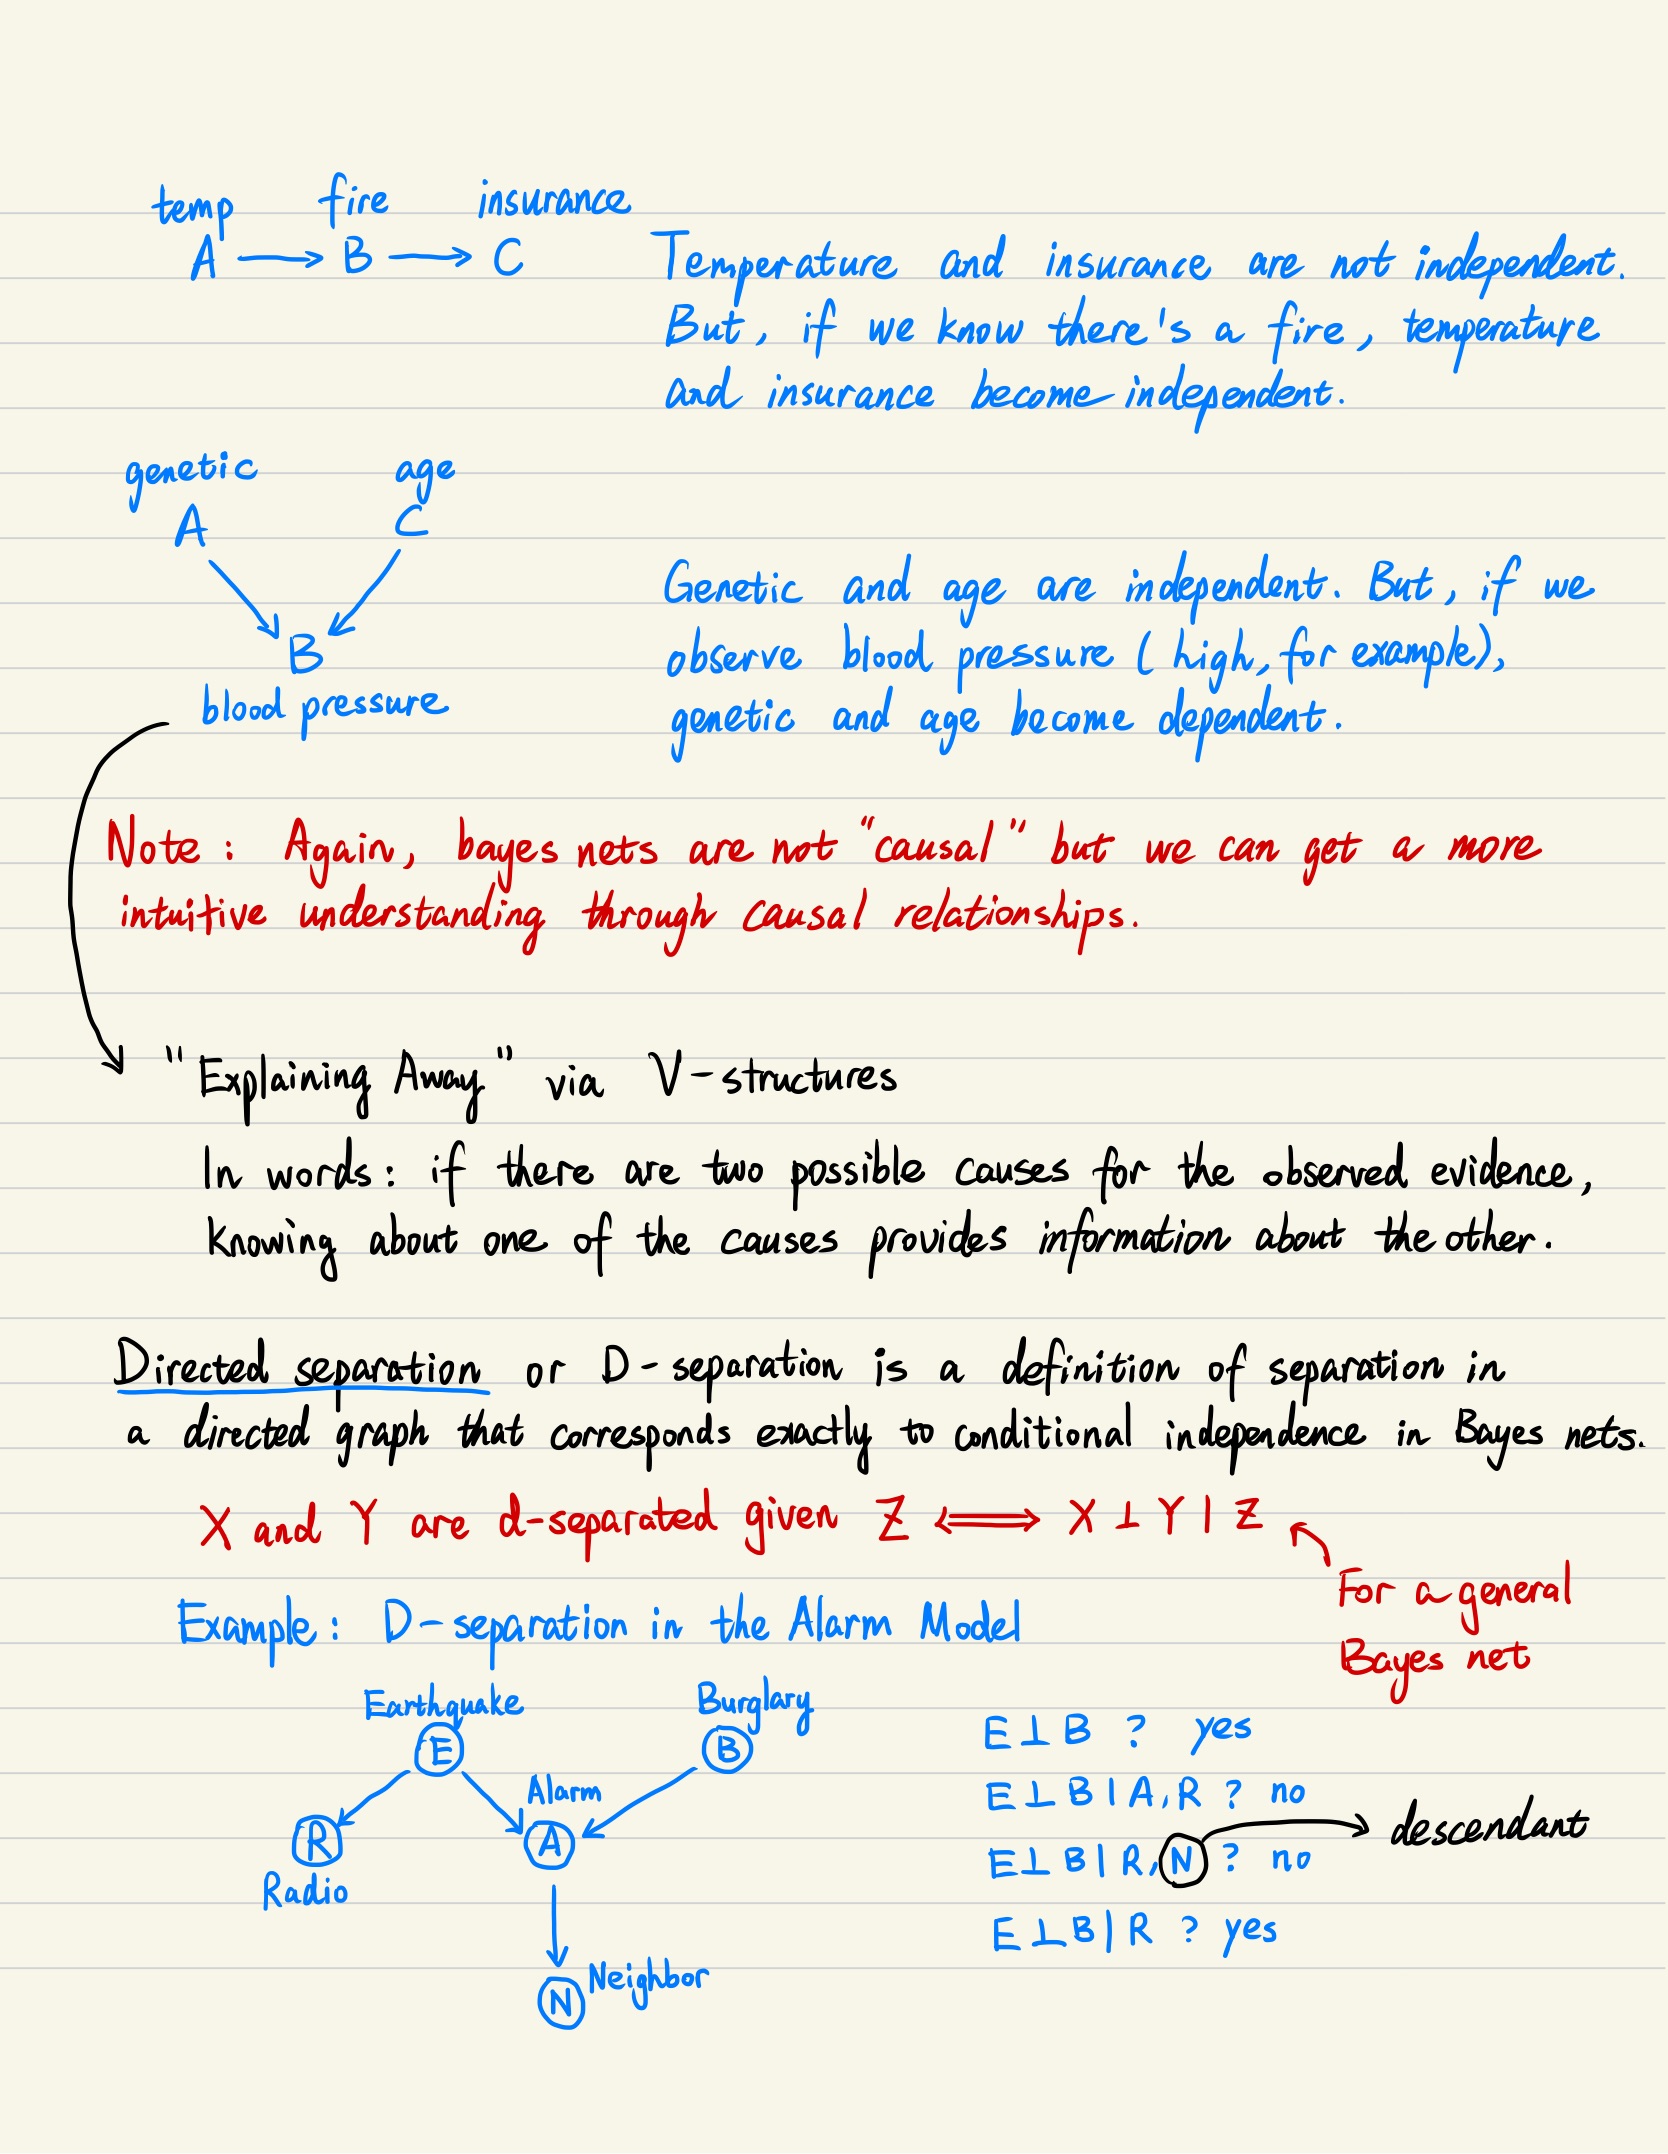 temp fire insurance
A → B → C
Temperature and insurance are not independent.
But, if we know there's a fire, temperature
and insurance become independent.
genetic age
A C
B
blood pressure
Genetic and age are independent. But, if we
observe blood pressure (high, for example),
genetic and age become dependent.
Note: Again, bayes nets are not "causal" but we can get a more
intuitive understanding through causal relationships.
"Explaining Away" via V-structures
In words: if there are two possible causes for the observed evidence,
knowing about one of the causes provides information about the other.
Directed separation or D-separation is a definition of separation in
a directed graph that corresponds exactly to conditional independence in Bayes nets.
X and Y are d-separated given Z ⟺ X ⊥ Y | Z
For a general
Bayes net
Example: D-separation in the Alarm Model
Earthquake Burglary
E B
Alarm
R A
Radio
Neighbor
N
E ⊥ B ? yes
E ⊥ B | A, R ? no
E ⊥ B | R, N ? no → descendant
E ⊥ B | R ? yes